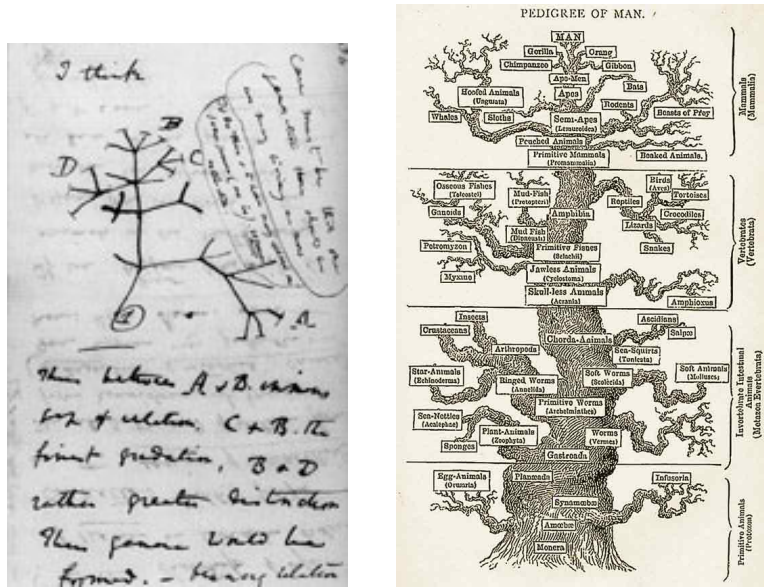 I think
B
D
C
A
1
Thus between A & B. immens
gap of relation. C & B. the
finest gradation, B & D
rather greater distinction
Thus genera would be
formed. — bearing relation
PEDIGREE OF MAN.
MAN
Gorilla
Orang
Chimpanzee
Gibbon
Ape-Men
Apes
Bats
Hoofed Animals
(Ungulata)
Rodents
Whales
Sloths
Semi-Apes
(Lemuroidea)
Beasts of Prey
Pouched Animals
Primitive Mammals
(Promammalia)
Beaked Animals.
Mammals
(Mammalia)
Osseous Fishes
(Teleostei)
Mud-Fish
(Protopteri)
Birds
(Aves)
Tortoises
Reptiles
Ganoids
Amphibia
Crocodiles
Lizards
Mud Fish
(Dipneusti)
Petromyzon
Primitive Fishes
(Selachii)
Snakes
Myxine
Jawless Animals
(Cyclostoma)
Skull-less Animals
(Acrania)
Amphioxus
Vertebrates
(Vertebrata)
Insects
Ascidians
Crustaceans
Salpæ
Chorda-Animals
Arthropods
Sea-Squirts
(Tunicata)
Star-Animals
(Echinoderma)
Ringed Worms
(Annelida)
Soft Worms
(Scolecida)
Soft Animals
(Molluscs)
Primitive Worms
(Archelminthes)
Sea-Nettles
(Acalephae)
Plant-Animals
(Zoophyta)
Worms
(Vermes)
Sponges
Gastreada
Invertebrate Intestinal
Animals
(Metazoa Evertebrata)
Egg-Animals
(Ovularia)
Planæada
Infusoria
Synamœbæ
Amœbæ
Monera
Primitive Animals
(Protozoa)